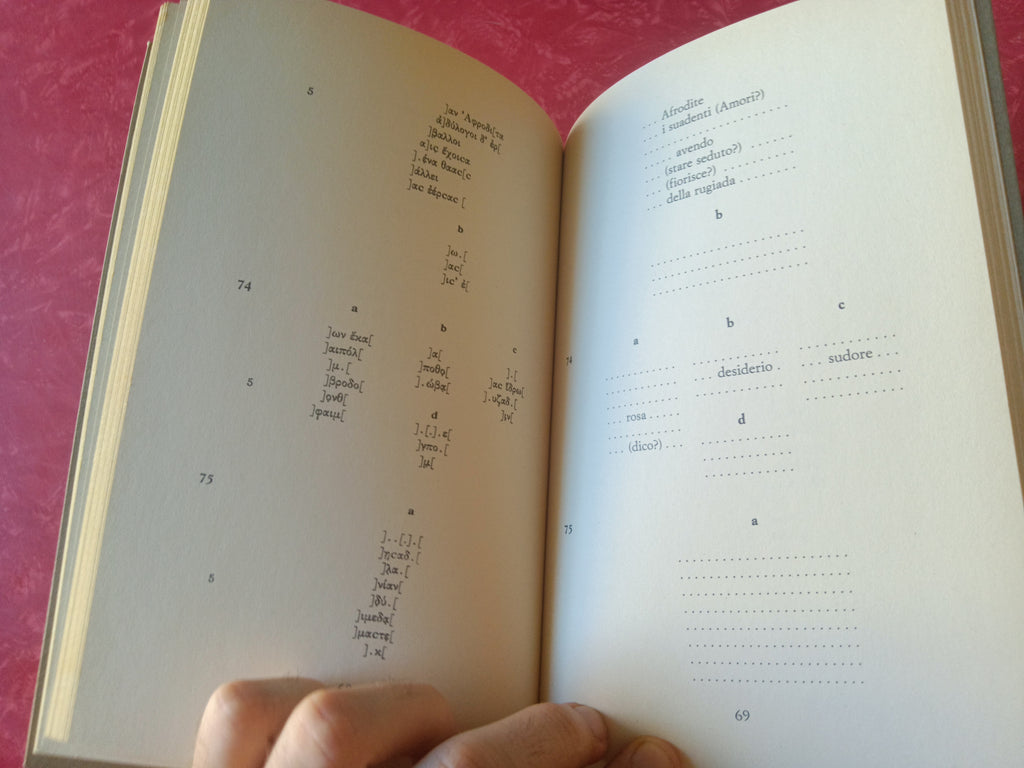 5
]αν Ἀφροδι[τα
ἀ]δύλογοι δ' ἐρ[
]βαλλοι
α]ις ἔχοισα
].ένα θαας[ς
]άλλει
]ας ἐέρσας [
b
]ω.[
]ας[
]ις' ἐ[
74
a
]ων ἔκα[
]αιπόλ[
]μ.[
5 ]βροδο[
]ονθ[
]φαιμ[
b
]α[
]ποθο[
].ώβα[
c
].[
]ας ἴδρω[
].υζαδ.[
]ιν[
d
].[.].ε[
]γπο.[
]μ[
75
a
]..[.].[
]ηςαδ.[
]λα.[
]νίαν[
5 ]δύ.[
]ιμεδα[
]μαςτε[
].κ[
. . . Afrodite
. . . i suadenti (Amori?)
. . . . . . . . . . . . . . .
. . . . . avendo
. . . (stare seduto?) . . . . . .
. . . (fiorisce?) . . . . . . . .
. . . della rugiada . . . . . . . .
b
. . . . . . . . . . . . . . . . .
. . . . . . . . . . . . . . . . .
. . . . . . . . . . . . . . . . .
74
a
. . . . . . . . .
. . . . . . . . .
. . . . . . . . .
. . . rosa . . . .
. . . . . . . . .
. . . (dico?) . . .
b
. . . . . . . . . .
. . . desiderio .
. . . . . . . . . .
c
. . . . . . . . . . .
. . . sudore . . .
. . . . . . . . . . .
. . . . . . . . . . .
d
. . . . . . . . . . .
. . . . . . . . . . .
. . . . . . . . . . .
75
a
. . . . . . . . . . . . . . . . . . .
. . . . . . . . . . . . . . . . . . .
. . . . . . . . . . . . . . . . . . .
. . . . . . . . . . . . . . . . . . .
. . . . . . . . . . . . . . . . . . .
. . . . . . . . . . . . . . . . . . .
. . . . . . . . . . . . . . . . . . .
. . . . . . . . . . . . . . . . . . .
69